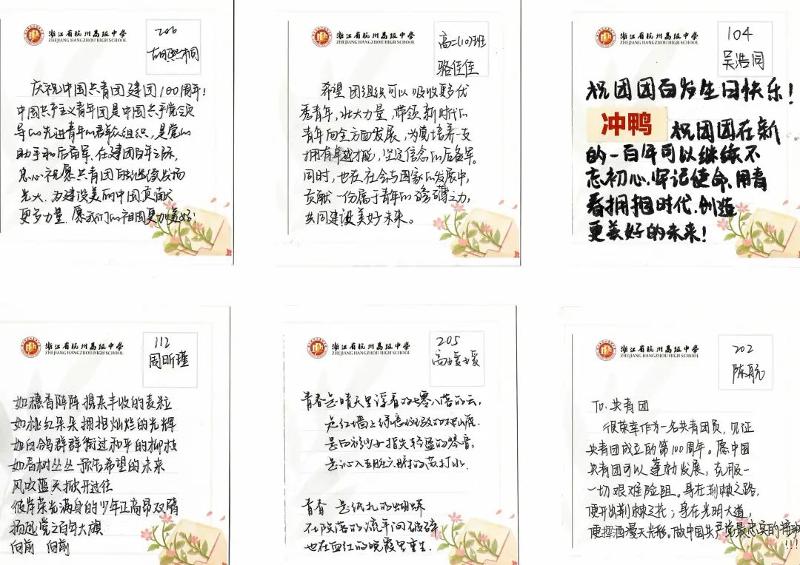 浙江省杭州高级中学
ZHEJIANG HANGZHOU HIGH SCHOOL
206
胡熙桐
庆祝中国共青团建团100周年!
中国共产主义青年团是中国共产党领
导的先进青年的群众组织,是党的
助手和后备军。在建团百年之际,
衷心祝愿共青团能继续发扬
光大,为建设美丽中国贡献
更多力量,愿我们的祖国更加美好!
浙江省杭州高级中学
ZHEJIANG HANGZHOU HIGH SCHOOL
高二(10)班
骆佳佳
希望团组织可以吸收更多优
秀青年,壮大力量,带领新时代的
青年向全方面发展,为党培养一支
拥有卓越才能,坚定信念的后备军。
同时,也在社会与国家的发展中,
贡献一份属于青年的磅礴之力,
共同建设美好未来。
浙江省杭州高级中学
ZHEJIANG HANGZHOU HIGH SCHOOL
104
吴浩同
祝团团百岁生日快乐!
冲鸭 祝团团在新
的一百年可以继续不
忘初心,牢记使命,用青
春拥抱时代,创造
更美好的未来!
浙江省杭州高级中学
ZHEJIANG HANGZHOU HIGH SCHOOL
112
周昕瑾
如穗香阵阵 携来丰收的麦粒
如桃红朵朵 拥抱灿烂的光辉
如白鸽群群 衔过和平的柳枝
如乌树丛丛 歌沿希望的未来
风吹蓝天掀开过往
彼岸荣光满身的少年正高昂双臂
扬起党之旬大旗
向前 向前
浙江省杭州高级中学
ZHEJIANG HANGZHOU HIGH SCHOOL
205
高媛媛
青春是晴天里浮着的零八落的云,
是红墙上绿意绽放的
是白衫少
是沁入
青春 是纸扎的蝴蝶
不在陨落的流年间
也在血红的晚霞里重生.
浙江省杭州高级中学
ZHEJIANG HANGZHOU HIGH SCHOOL
202
陈航
To. 共青团
很荣幸作为一名共青团员,见证
共青团成立的第100周年。愿中国
共青团可以蓬勃发展,克服一
一切艰难险阻。身在荆棘之路,
便开出荆棘之花;身在光明大道,
便挥洒漫天光辉。做中国共产党最忠实的
!!!